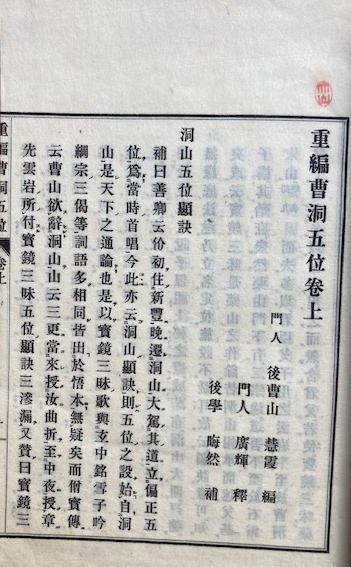 重編曹洞五位卷上
門人 後曹山 慧霞 編
門人 廣輝 釋
後學 晦然 補
洞山五位顯訣
補曰善卿云价初住新豐晚遷洞山大駕其道立偏正五
位爲當時首唱今此亦云洞山顯訣則五位之設始自洞
山是天下之通論也是以寶鏡三昧歌與玄中銘雪子吟
綱宗三偈等詞語多相同皆出於悟本無疑矣而僧寶傳
云曹山欲辭洞山山云三更當來授汝曲折至中夜授章
先雲岩所付寶鏡三昧五位顯訣三滲漏又贊曰寶鏡三
重編曹洞五位 卷上